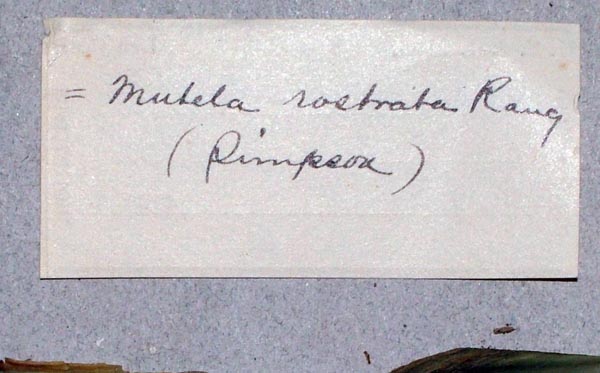 = Mutela rostrata Rang
(Simpson)